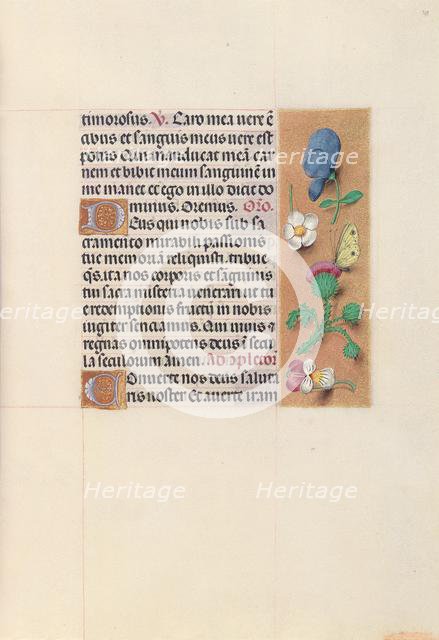 timorosus. V. Caro mea vere ē
cibus et sanguis meus vere est
potus Qui manducat meā car
nem et bibit meum sanguinē in
me manet et ego in illo dicit do
minus. Oremus. Oro.
Deus qui nobis sub sa
cramento mirabili passionis
tue memoriā reliquisti, tribue
q̄s ita nos corporis et sāguinis
tui sacra misteria venerari ut re
demptionis fructū in nobis
iugiter senciamus. Qui vivis et
regnas omnipotens deus p secu
la seculorum Amen. Ad cōpletoriū
Converte nos deus saluta
ris noster Et averte iram
Heritage
Heritage
Heritage
Heritage
Heritage
Heritage
Heritage
Heritage